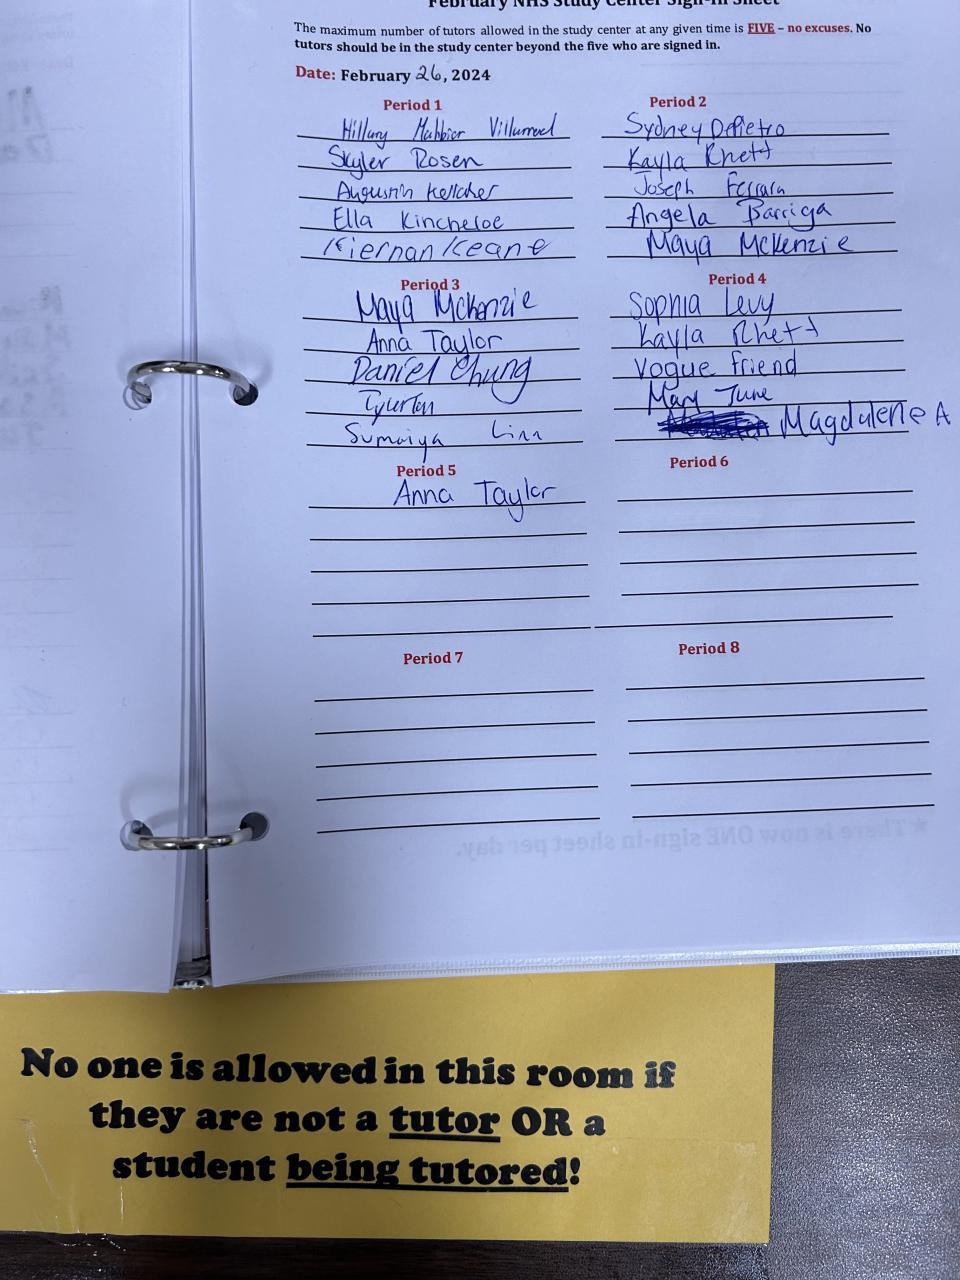 February NHS Study Center Sign-In Sheet
The maximum number of tutors allowed in the study center at any given time is FIVE – no excuses. No
tutors should be in the study center beyond the five who are signed in.
Date: February 26, 2024
Period 1
Hillary
Skyler Rosen
Augustin Kelleher
Ella Kincheloe
Kiernan Keane
Period 2
Sydney DePietro
Kayla Rhett
Joseph Ferrara
Angela Barriga
Maya McKenzie
Period 3
Maya McKenzie
Anna Taylor
Daniel Chung
Sumaiya
Period 4
Sophia Levy
Kayla Rhett
Vogue friend
Mary June
Magdalene A
Period 5
Anna Taylor
Period 6
Period 7
Period 8
*There is now ONE sign-in sheet per day.
No one is allowed in this room if
they are not a tutor OR a
student being tutored!